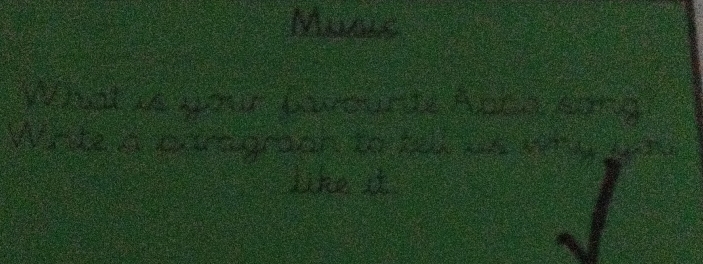 Music
What is your favourite Abba song
Write a paragraph to tell us why you
like it